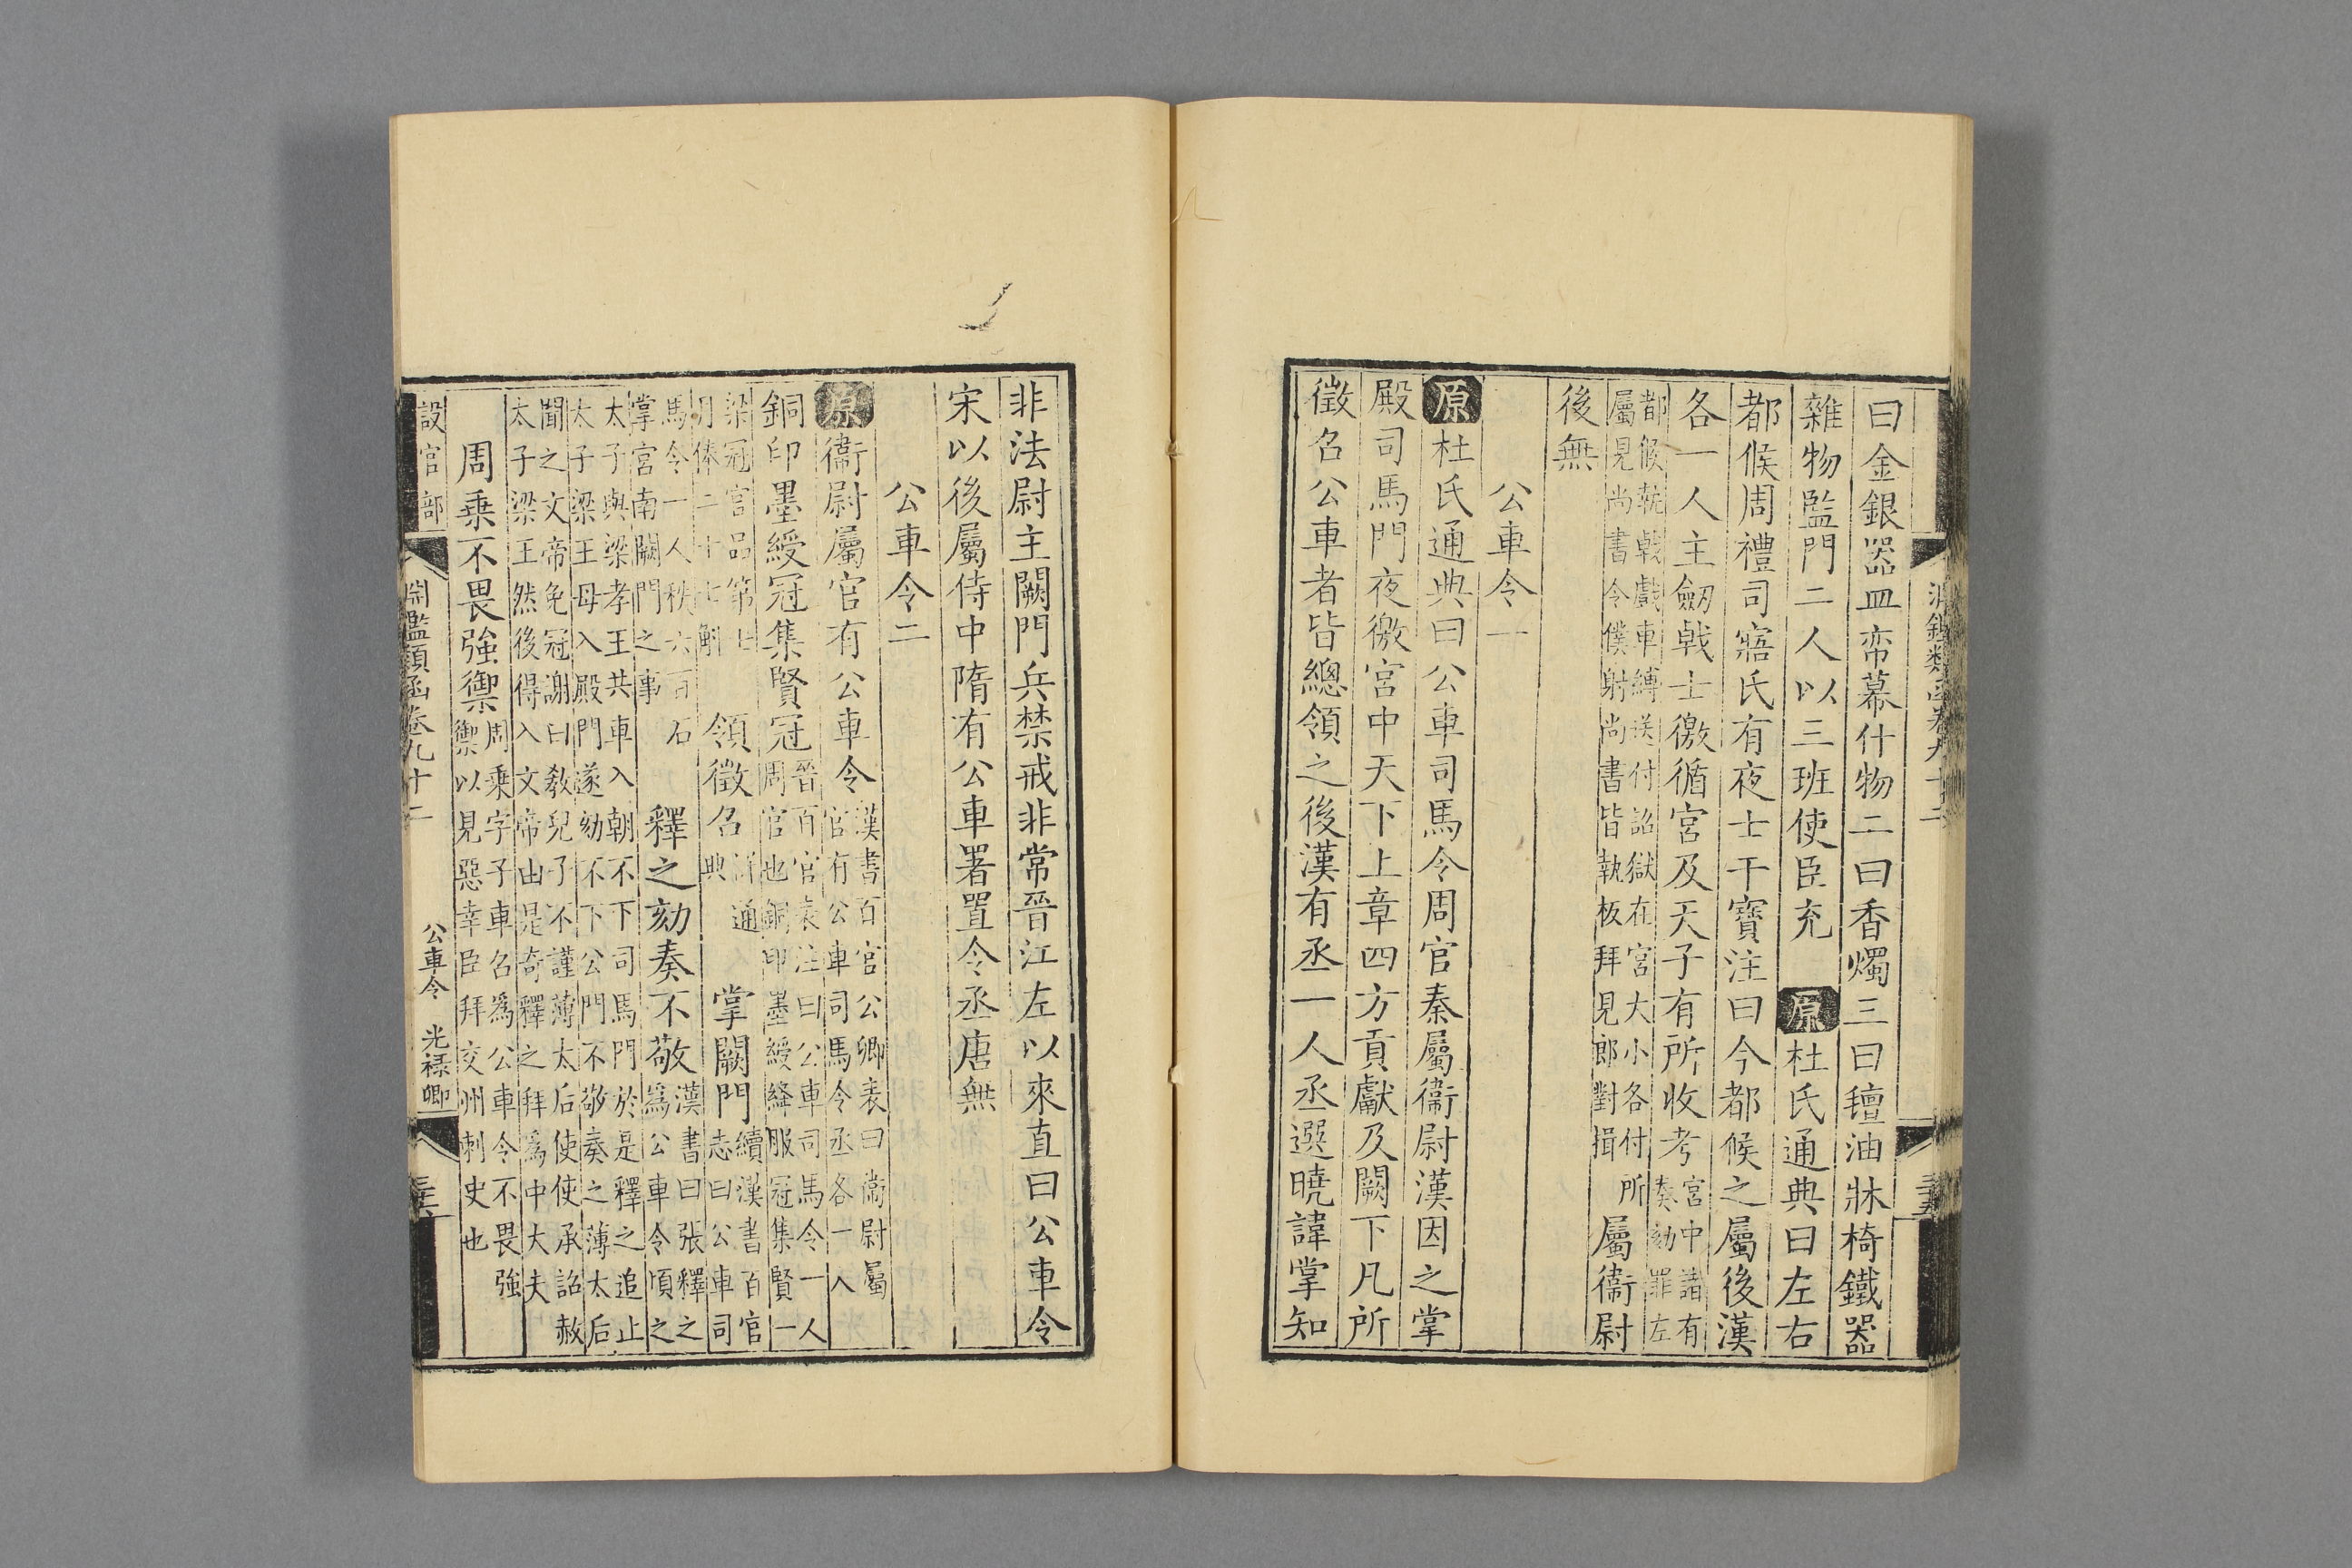 曰金銀器皿帟幕什物二曰香燭三曰氊油牀椅鐵器
雜物監門二人以三班使臣充　原杜氏通典曰左右
都候周禮司寤氏有夜士干寶注曰今都候之屬後漢
各一人主劒戟士徼循宮及天子有所收考宮中諸有
奏劾罪左
都候執戟戲車縛送付詔獄在宮大小各付所
屬見尚書令僕射尚書皆執板拜見郎對揖
屬衞尉
後無
公車令一
原杜氏通典曰公車司馬令周官秦屬衞尉漢因之掌
殿司馬門夜徼宮中天下上章四方貢獻及闕下凡所
徵召公車者皆總領之後漢有丞一人丞選曉諱掌知
非法尉主闕門兵禁戒非常晉江左以來直曰公車令
宋以後屬侍中隋有公車署置令丞唐無
公車令二
原衞尉屬官有公車令漢書百官公卿表曰衞尉屬
官有公車司馬令丞各一人
銅印墨綬冠集賢冠晉百官表注曰公車司馬令一人
周官也銅印墨綬絳服冠集賢一
梁冠官品第七
月俸二十七斛
領徵召通
典
掌闕門續漢書百官
志曰公車司
馬令一人秩六百石
掌宮南闕門之事
釋之劾奏不敬漢書曰張釋之
爲公車令頃之
太子與梁孝王共車入朝不下司馬門於是釋之追止
太子梁王母入殿門遂劾不下公門不敬奏之薄太后
聞之文帝免冠謝曰教兒子不謹薄太后使使承詔赦
太子梁王然後得入文帝由是奇釋之拜爲中大夫
周乗不畏強禦周乗字子車召爲公車令不畏強
禦以見惡幸臣拜交州刺史也
設官部
淵鑑類函卷九十二
公車令　光祿卿